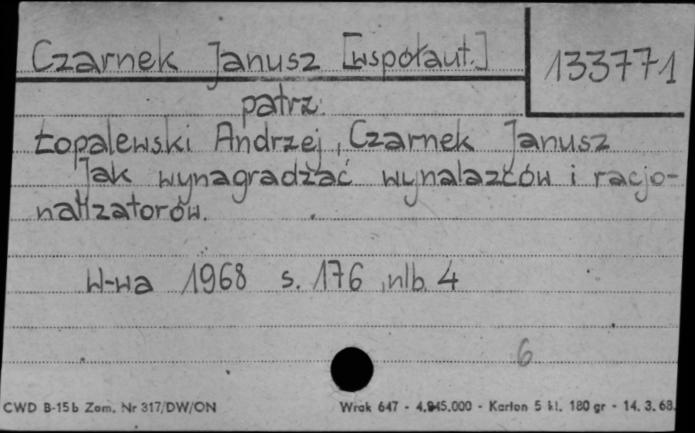 Czarnek Janusz [współaut.] 133771
patrz:
Łopalewski Andrzej, Czarnek Janusz
Jak wynagradzać wynalazców i racjo-
nalizatorów.
W-wa 1968 s. 176, nlb. 4
6
CWD B-15b Zam. Nr 317/DW/ON Wrak 647 - 4.945.000 - Karton 5 kl. 180 gr - 14. 3. 68.